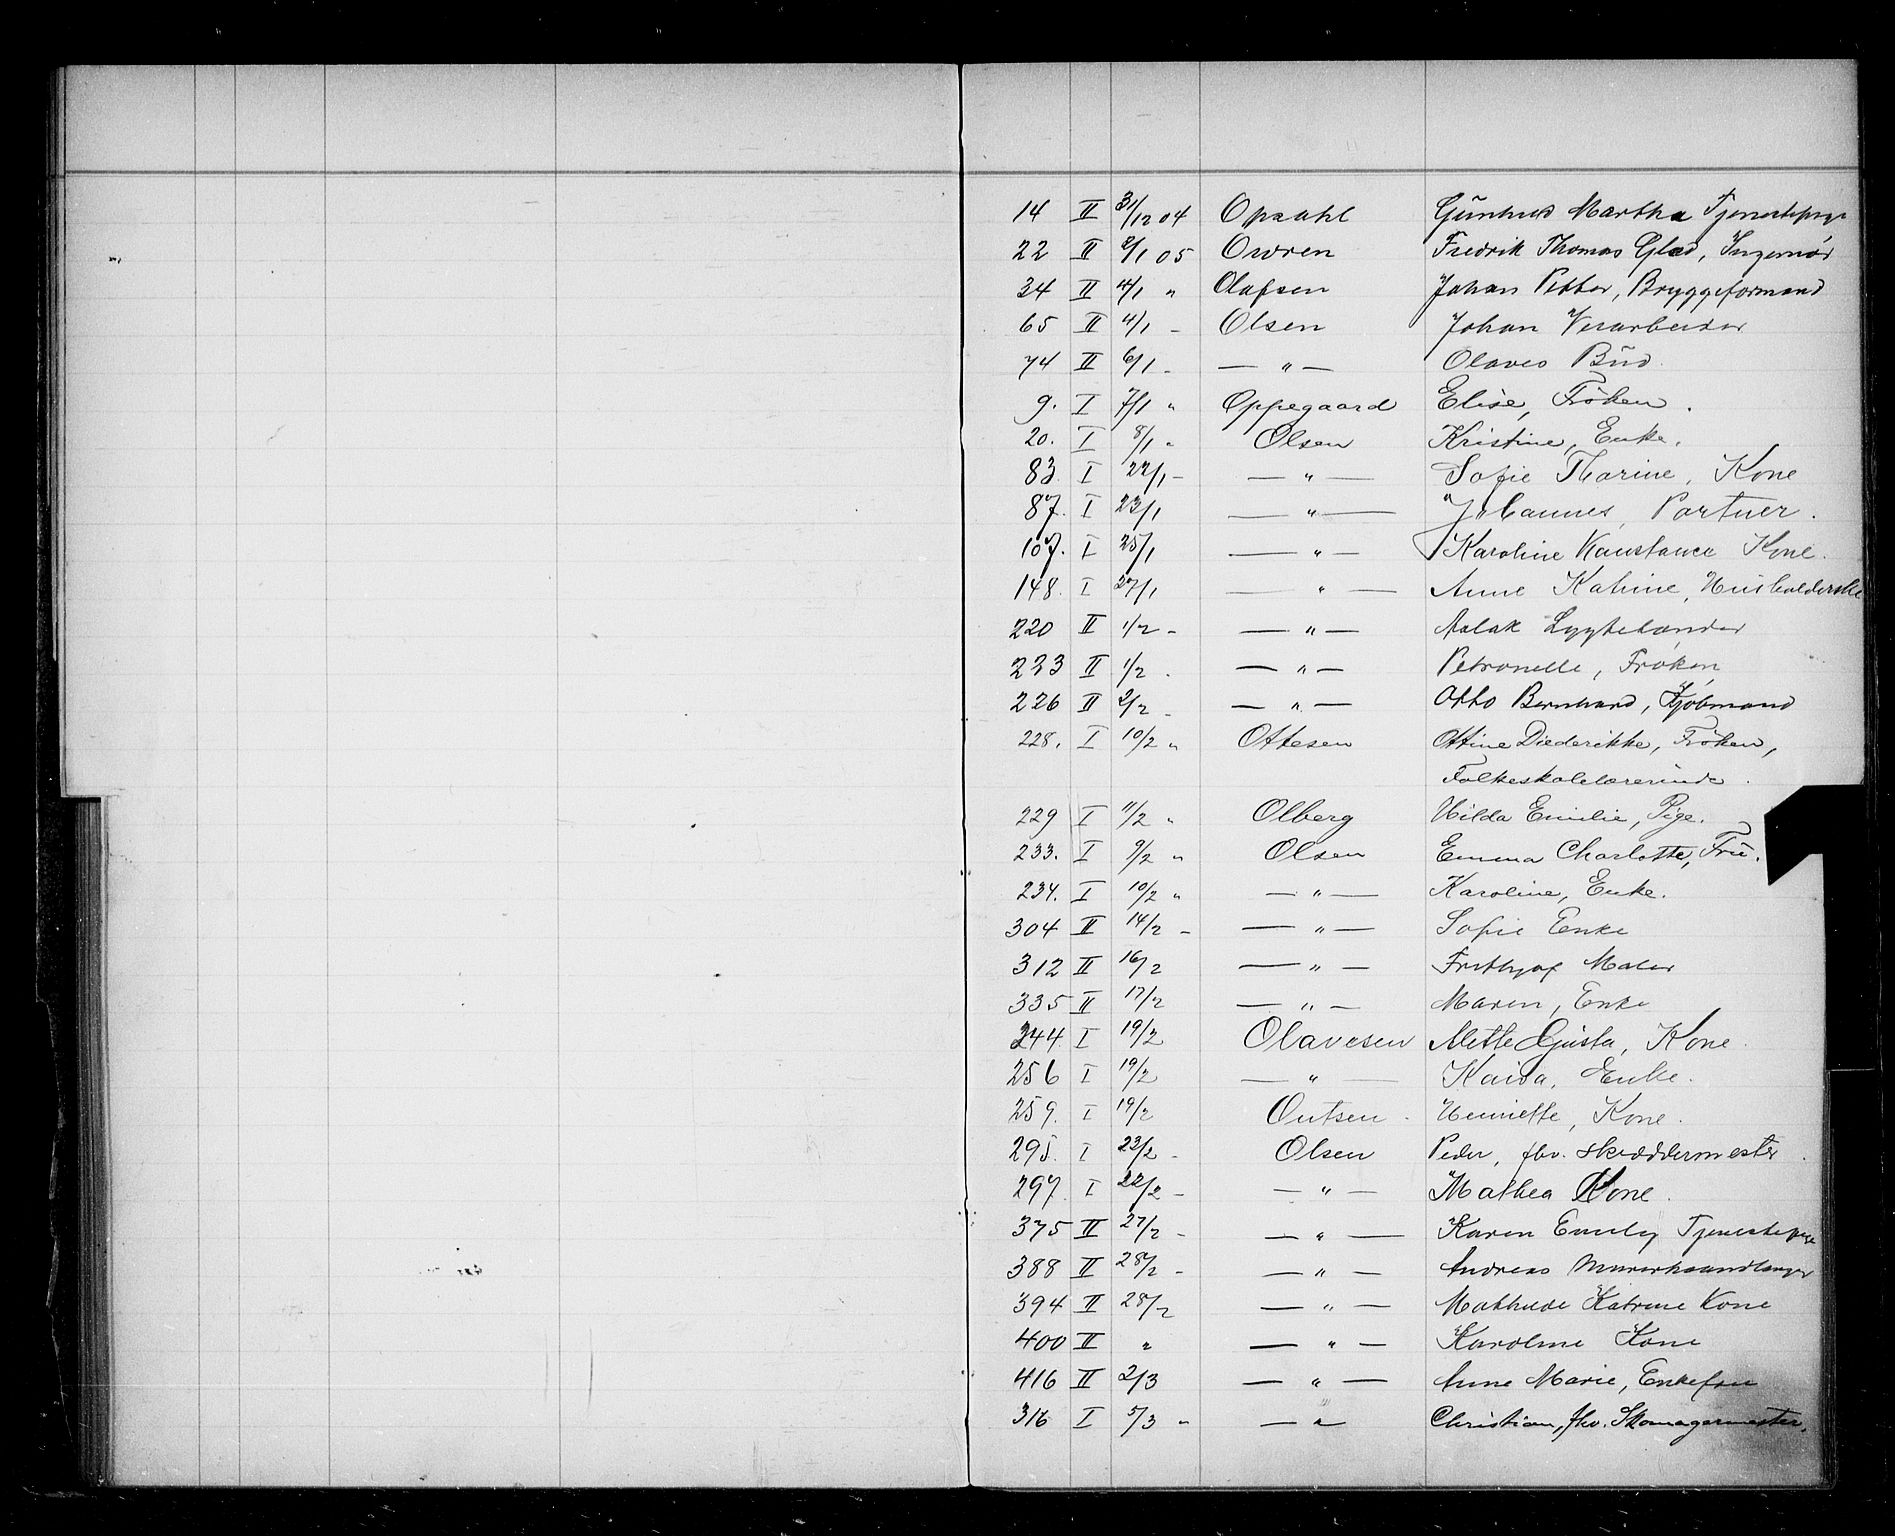 14 II 31/12 04 Opsahl Gunhild Martha Tjenestepige
22 II 2/1 05 Owren Fredrik Thomas Glad, Ingeniør
34 II 4/1 " Olafsen Johan Petter, Bryggeformand
65 II 4/1 - Olsen Johan Veiarbeider
74 II 6/1 - — " — Olaves Bud
9. I 7/1 " Oppegaard Elise, Frøken.
20. I 8/1 " Olsen Kristine, Enke.
83 I 22/1 - — " — Sofie Thorine, Kone
87. I 23/1 — " — Johannes, Portner.
107. I 25/1 — " — Karoline Konstance Kone.
148. I 27/1 — " — Anne Katrine, Husholderske
220 II 1/2 - — " — Aslak Lygtetænder
223 II 1/2 . — " — Petronelle, Frøken
226 II 2/2 - — " — Otto Bernhard, Kjøbmand
228. I 10/2 " Ottesen Ottine Diederikke, Frøken,
Folkeskolelærerinde.
229 I 11/2 " Olberg Hilda Emilie, Pige.
233. I 9/2 " Olsen Emma Charlotte, Fru.
234. I 10/2 " — " — Karoline, Enke.
304 II 14/2 - — " — Sofie Enke
312 II 16/2 — " — Frithjof Maler
335 II 17/2 — " — Maren, Enke
244. I 19/2 Olavesen Mette Gusta, Kone.
256 I 19/2 — " — Kaisa, Enke.
259. I 19/2 Outsen. Henriette, Kone.
295. I 23/2 - Olsen Peder, fhv. skræddermester.
297. I 22/2 - — " — Mathea Kone.
375 II 27/2 - — " — Karen Emily Tjenestepige
388 II 28/2 - — " — Andreas Murerhaandlanger
394 II 28/2 — " — Mathilde Katrine Kone
400 II " — " — Karoline Kone
416 II 2/3 — " — Anne Marie, Enkefru
316 I 5/3 " — " — Christian, fhv. Skomagermester.